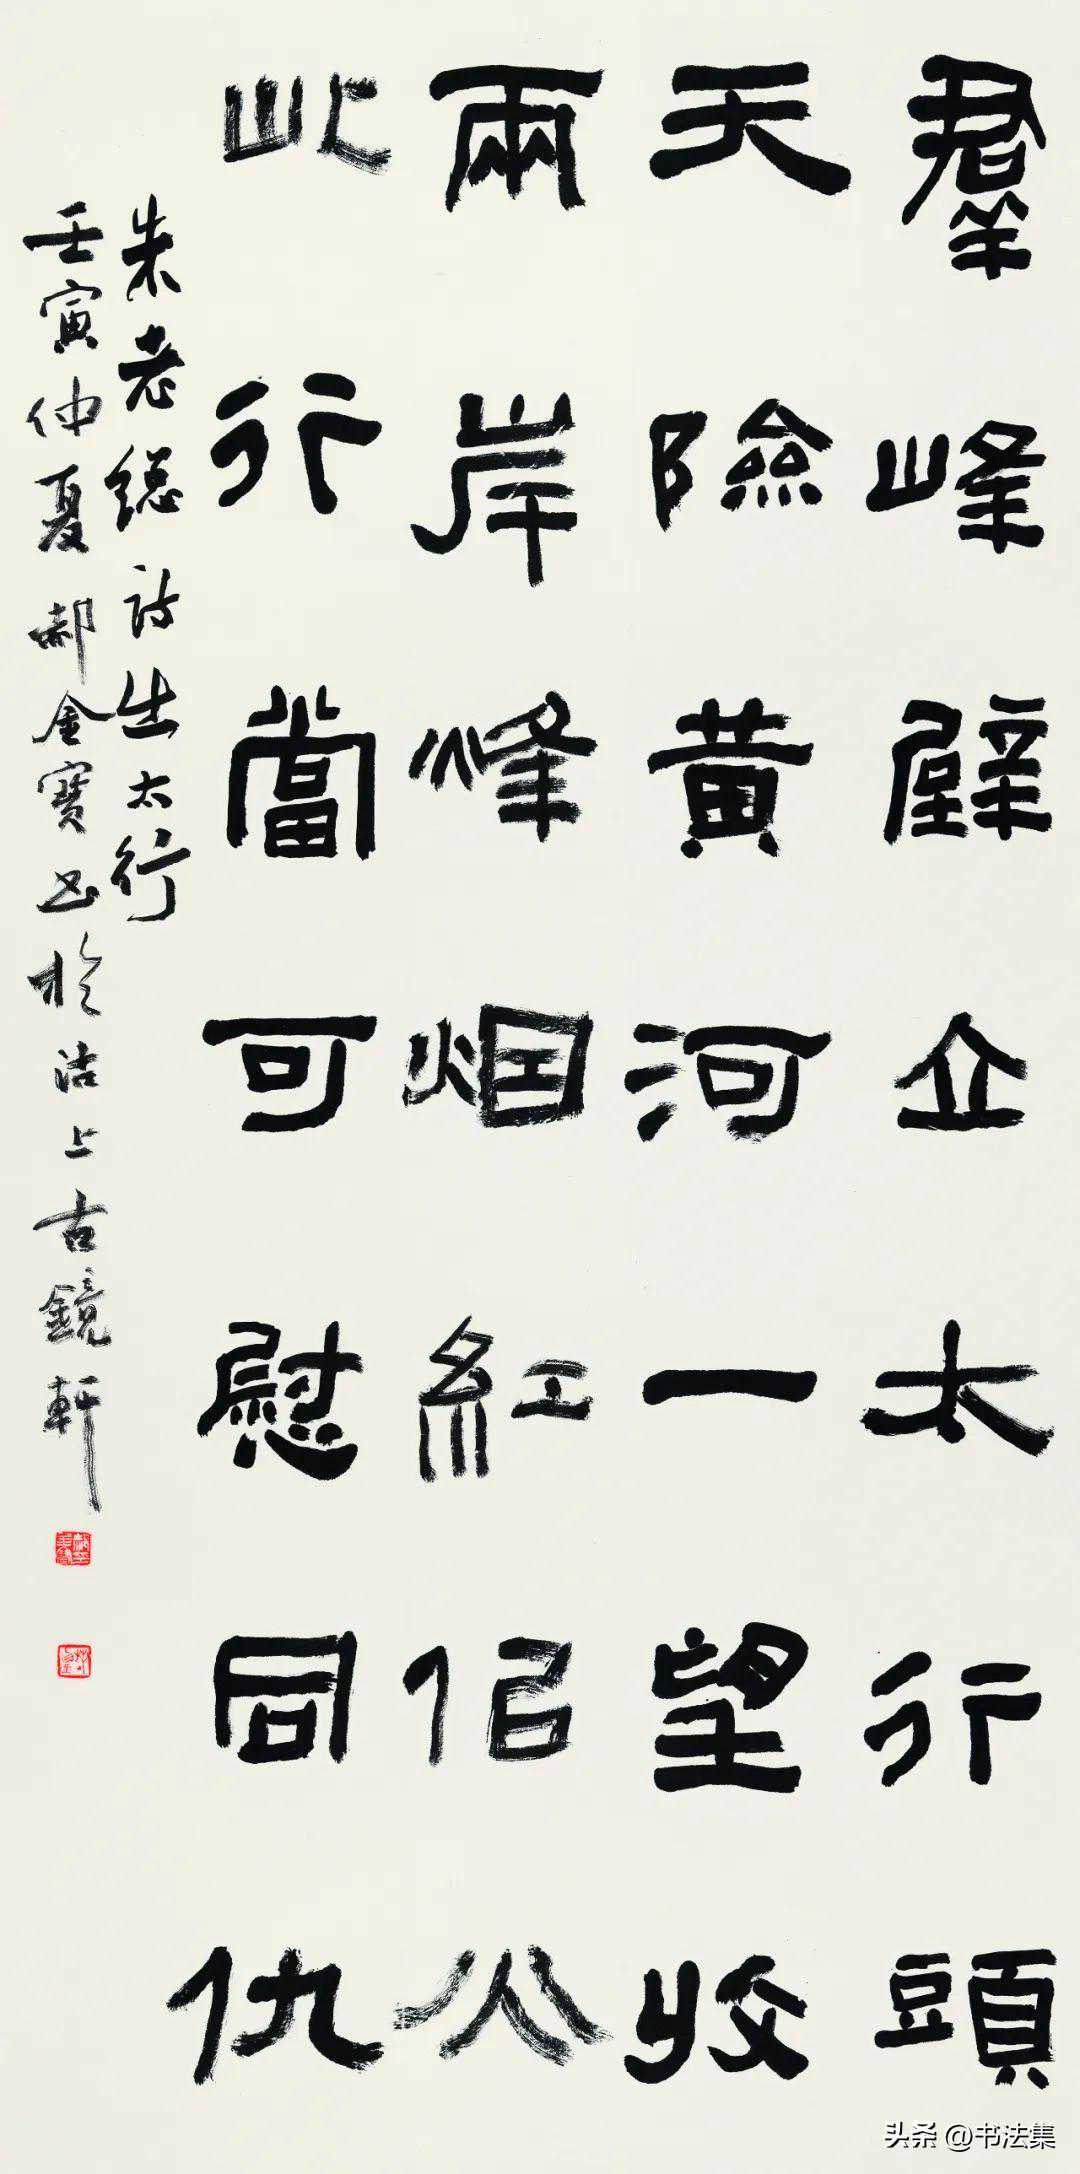 羣峰壁立太行頭
天險黄河一望收
兩岸烽烟紅似火
此行當可慰同仇
朱老總詩出太行
壬寅仲夏郝金寶書於沽上古鏡軒
头条 @书法集